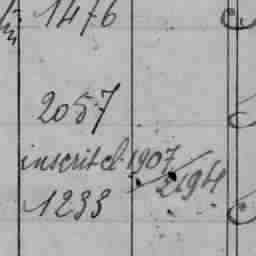 1476
2057
inscrit cl. 1907
2194
1233